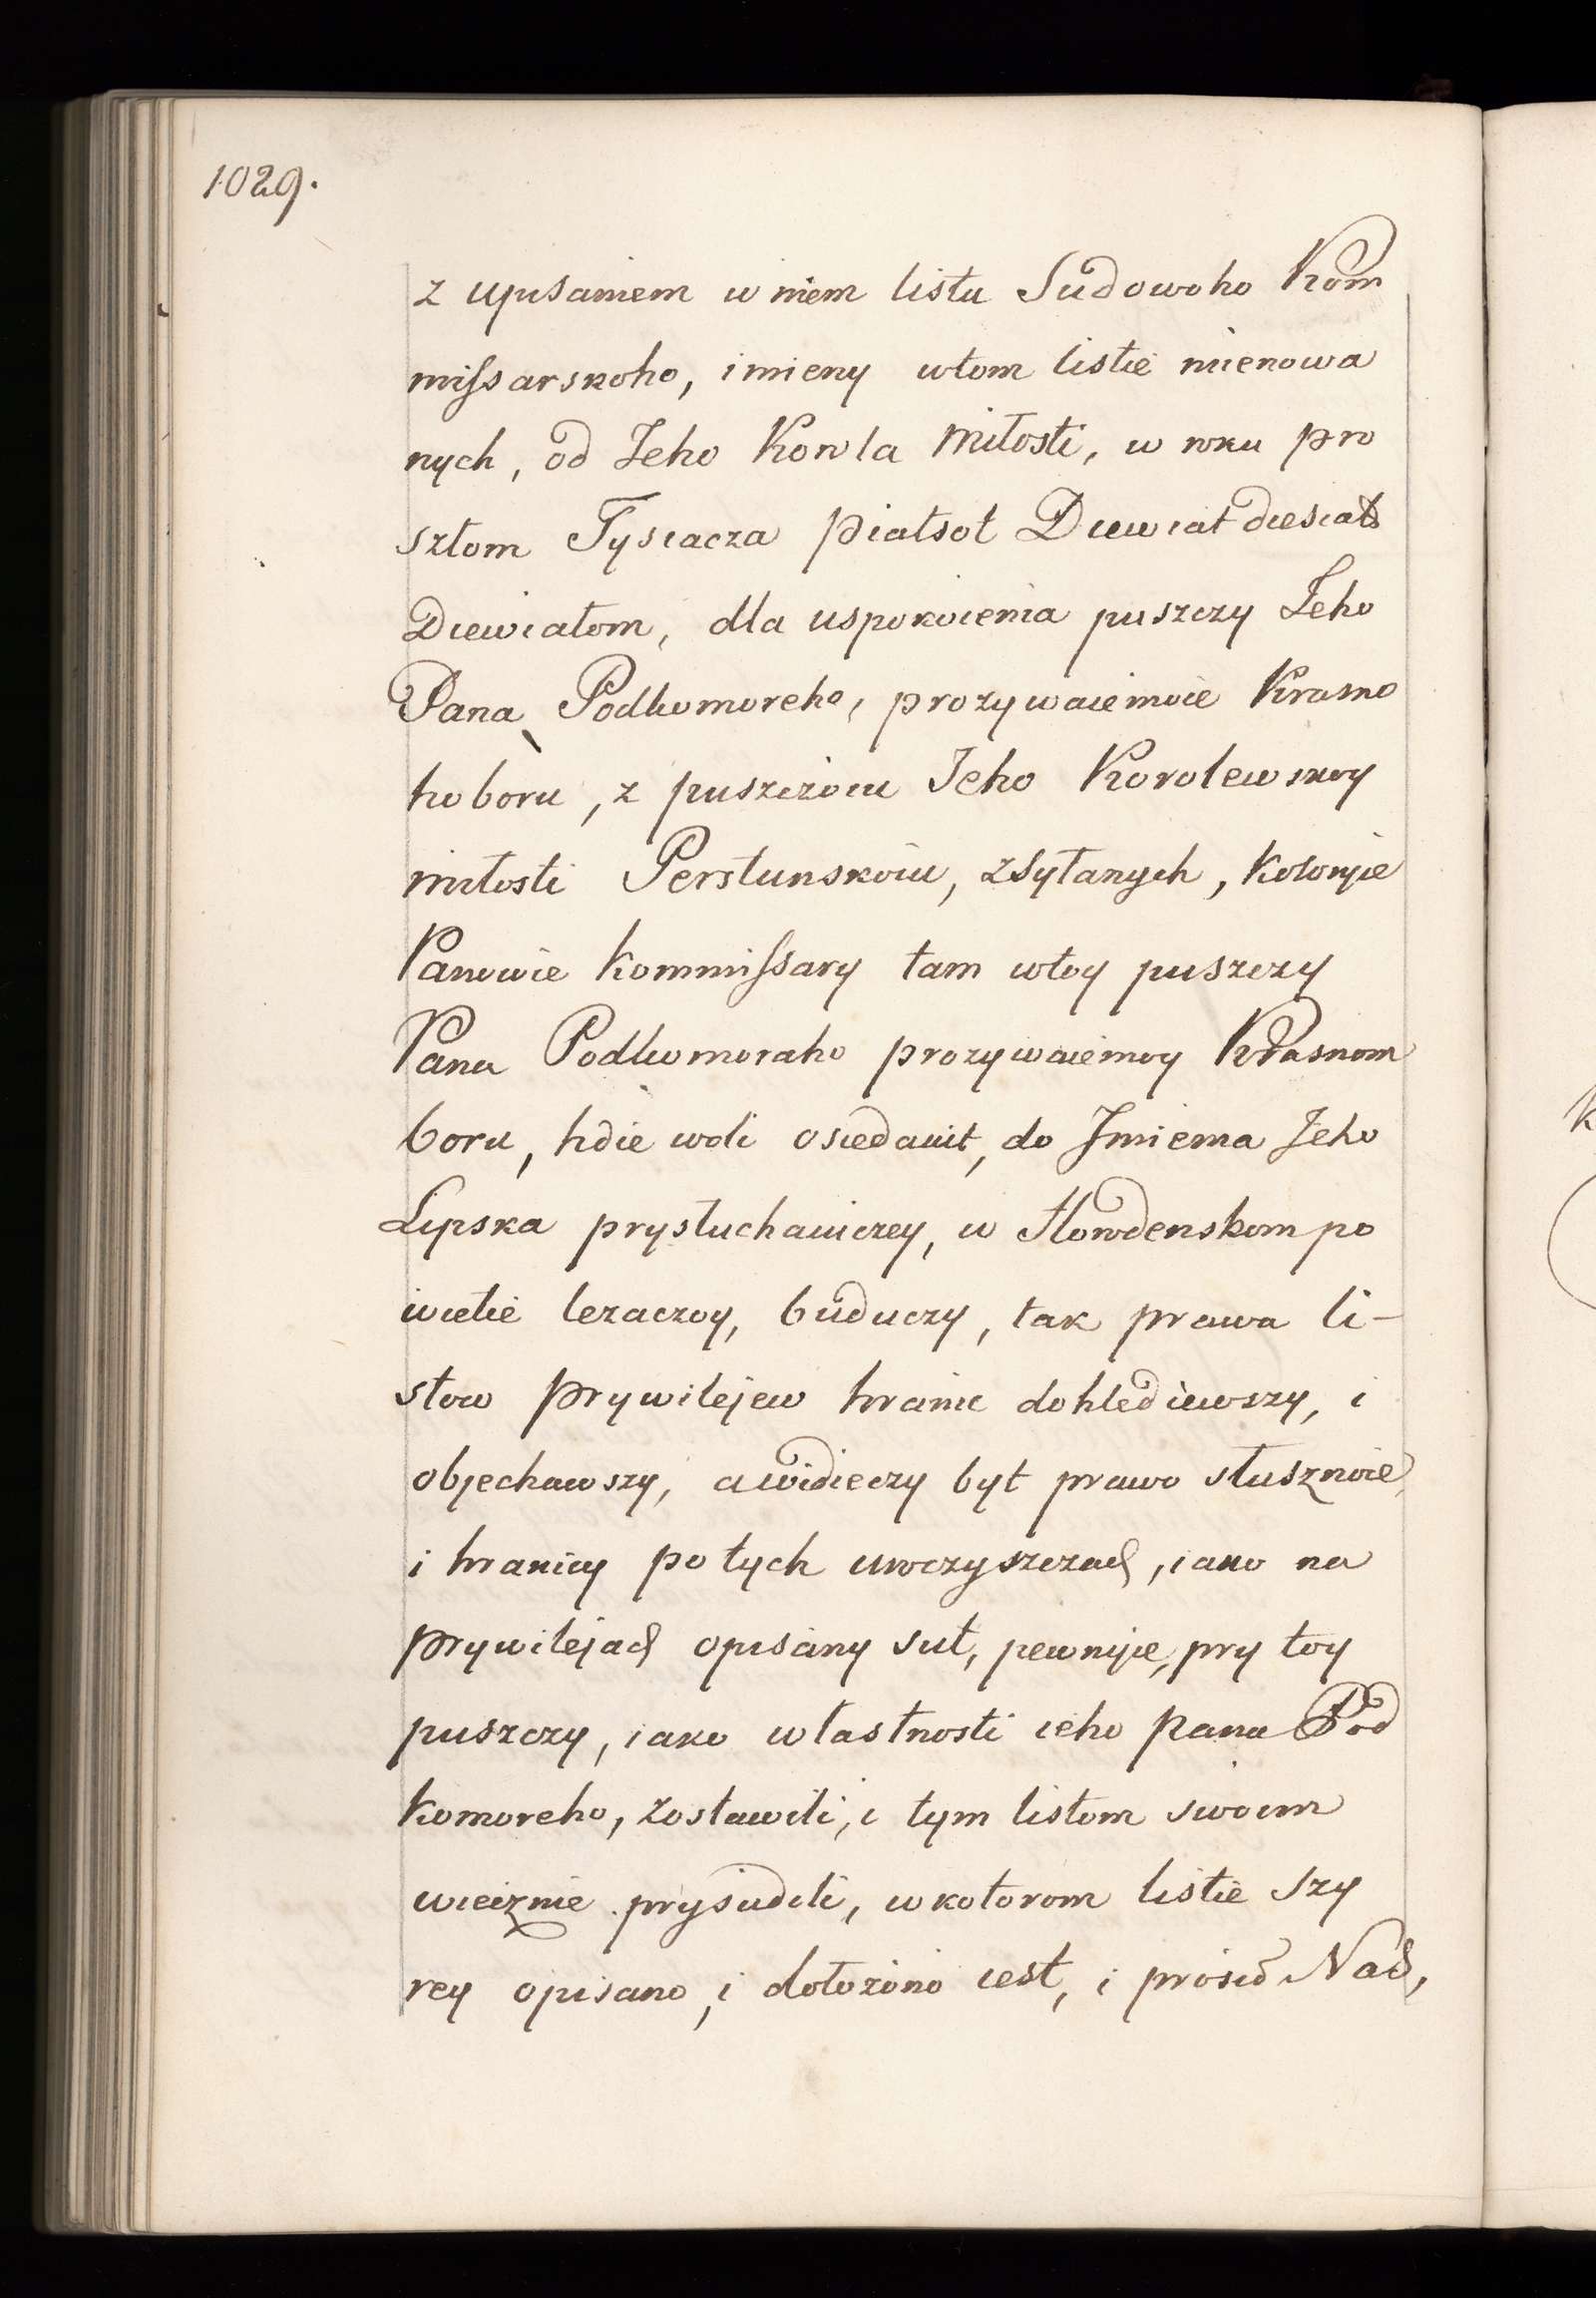 1029.
z upisaniem w niem listu Sudowoho Kom
missarskoho, imieny wtom listie mienowa
nych, od Jeho Korola Miłosti, w roku pro
szłom Tysiacza piatsot Diewiat diesiat
Diewiatom, dla uspokoienia puszczy Jeho
Pana Podkomoreho, prozywaiemoie Krasno
hoboru, z puszczoiu Jeho Korolewskoy
miłosti Perstunskoiu, zsyłanych, kotoryie
Panowie Kommissary tam wtoy puszczy
Pana Podkomoraho prozywaiemoy Krasnom
boru, hdie woli osiedaiut, do Jmienia Jeho
Lipska prysłuchaiuczey, w Horodenskom po
wietie lezaczoy, buduczy, tak prawa li-
stow prywilejew hranic dohlediewszy, i
objechawszy, a widieczy byt prawo słusznoie,
i hranicy po tych uroczyszczach, iako na
prywilejach opisany sut, pewnyie, pry toy
puszczy, iako własnosti ieho pana Pod
komoreho, zostawili, i tym listom swoim
wieczne prysudili, w kotorom listie szy
rey opisano, i dołożono iest, i prosił Nas,